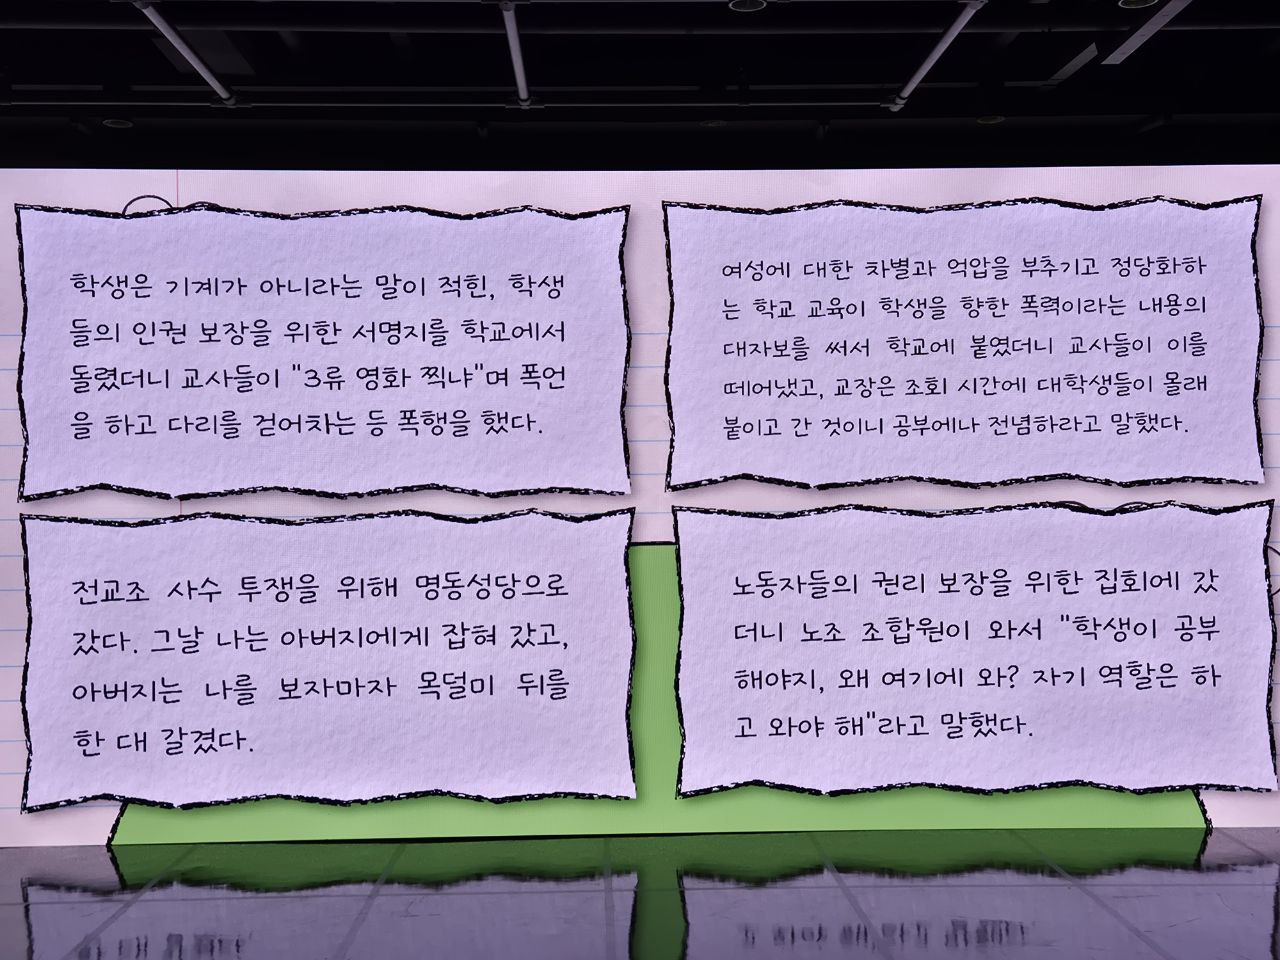 학생은 기계가 아니라는 말이 적힌, 학생
들의 인권 보장을 위한 서명지를 학교에서
돌렸더니 교사들이 "3류 영화 찍냐"며 폭언
을 하고 다리를 걷어차는 등 폭행을 했다.
여성에 대한 차별과 억압을 부추기고 정당화하
는 학교 교육이 학생을 향한 폭력이라는 내용의
대자보를 써서 학교에 붙였더니 교사들이 이를
떼어냈고, 교장은 조회 시간에 대학생들이 몰래
붙이고 간 것이니 공부에나 전념하라고 말했다.
전교조 사수 투쟁을 위해 명동성당으로
갔다. 그날 나는 아버지에게 잡혀 갔고,
아버지는 나를 보자마자 목덜미 뒤를
한 대 갈겼다.
노동자들의 권리 보장을 위한 집회에 갔
더니 노조 조합원이 와서 "학생이 공부
해야지, 왜 여기에 와? 자기 역할은 하
고 와야 해"라고 말했다.